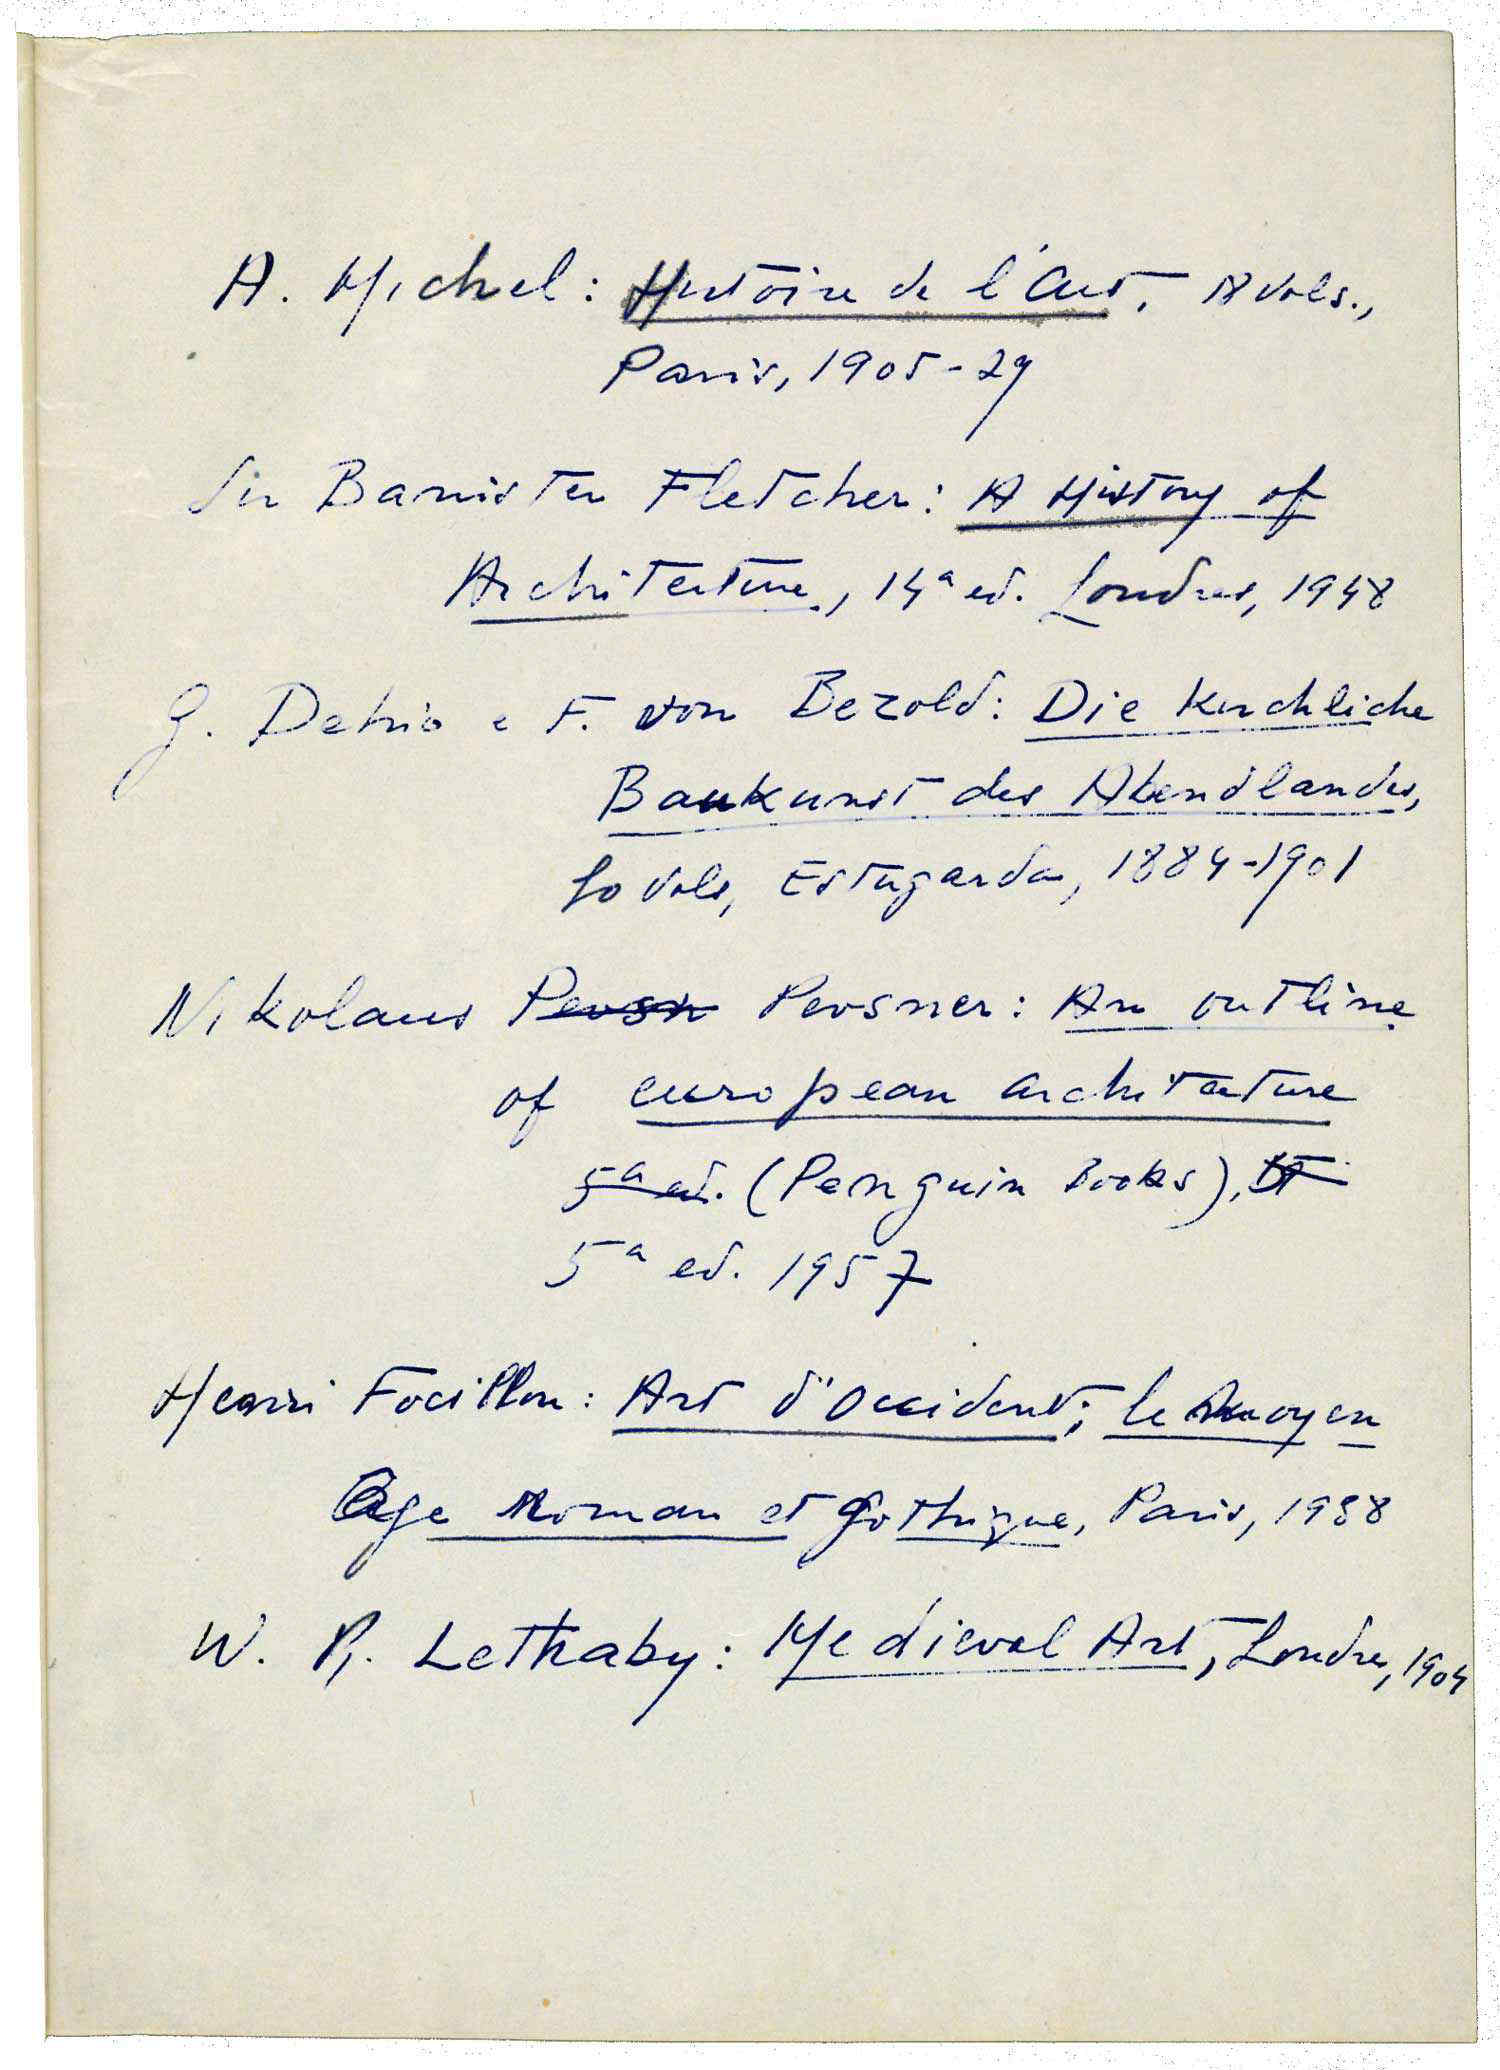 A. Michel: Histoire de l'Art, 18 vols.,
Paris, 1905-29
Sir Banister Fletcher: A History of
Architecture, 14ª ed. Londres, 1948
G. Dehio e F. von Bezold: Die kirchliche
Baukunst des Abendlandes,
10 vols, Estugarda, 1884-1901
Nikolaus Pevsn Pevsner: An outline
of european architecture
5ª ed. (Penguin Books),
5ª ed. 1957
Henri Focillon: Art d'Occident; le moyen
age roman et gothique, Paris, 1938
W. R. Lethaby: Medieval Art, Londres, 1904